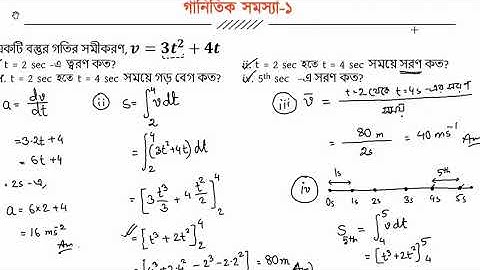 গানিতিক সমস্যা-১
একটি বস্তুর গতির সমীকরণ, v = 3t² + 4t
t = 2 sec -এ ত্বরণ কত?
ii. t = 2 sec হতে t = 4 sec সময়ে সরণ কত?
t = 2 sec হতে t = 4 sec সময়ে গড় বেগ কত?
iv. 5th sec -এ সরণ কত?
a = dv/dt
= 3·2t + 4
= 6t + 4
2s -এ,
a = 6×2 + 4
= 16 ms⁻² Ans
ii) S = ∫₂⁴ v dt
= ∫₂⁴ (3t²+4t) dt
= [3 t³/3 + 4 t²/2]₂⁴
= [t³ + 2t²]₂⁴
= [4³ + 2·4² - 2³ - 2·2²] = 80m Ans
iii) v̄ = t=2 থেকে t=4s -এর সরণ / সময়
= 80 m / 2s = 40 ms⁻¹ Ans
iv) 1s 5th
0s 1s 2s 3s 4s 5s
S5th = ∫₄⁵ v dt
= [t³+2t²]₄⁵